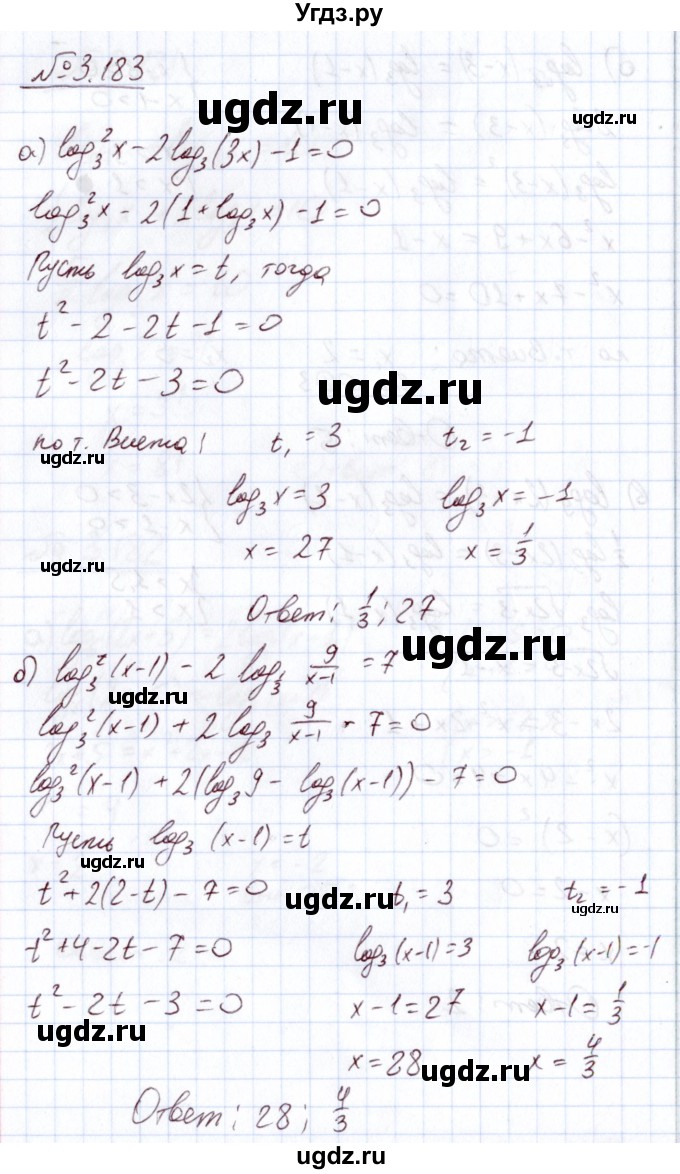 Угдз.ру
№3.183
ugdz.ru
а) log₃²x - 2log₃(3x) - 1 = 0
log₃²x - 2(1 + log₃x) - 1 = 0
Пусть log₃x = t, тогда
t² - 2 - 2t - 1 = 0
t² - 2t - 3 = 0
ugdz.ru
по т. Виета: t₁ = 3 t₂ = -1
ugdz.ru
ugdz.ru
log₃x = 3 log₃x = -1
x = 27 x = 1/3
ugdz.ru
ugdz.ru
Ответ: 1/3; 27
ugdz.ru
б) log₃²(x-1) - 2 log 9/(x-1) = 7
ugdz.ru
log₃²(x-1) + 2 log₃ 9/(x-1) - 7 = 0
log₃²(x-1) + 2(log₃9 - log₃(x-1)) - 7 = 0
Пусть log₃(x-1) = t
ugdz.ru
t² + 2(2-t) - 7 = 0 t₁ = 3 t₂ = -1
ugdz.ru
ugdz.ru
t² + 4 - 2t - 7 = 0 log₃(x-1) = 3 log₃(x-1) = -1
t² - 2t - 3 = 0 x - 1 = 27 x - 1 = 1/3
ugdz.ru
x = 28 x = 4/3
ugdz.ru
Ответ: 28; 4/3
ugdz.ru
ugdz.ru